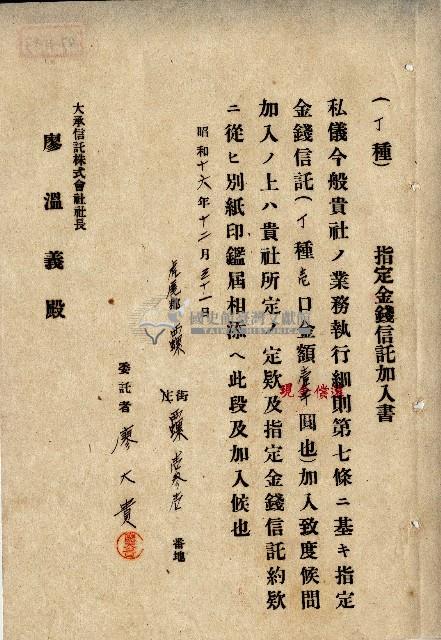 (丁種)
指定金錢信託加入書
私儀今般貴社ノ業務執行細則第七條ニ基キ指定
金錢信託(丁種壱口金額壹千圓也)加入致度候間
現金償還
加入ノ上ハ貴社所定ノ定款及指定金錢信託約款
ニ從ヒ別紙印鑑屆相添ヘ此段及加入候也
昭和十六年十二月三十一日
虎尾郡西螺
街庄西螺壱參壱番地
委託者 廖大貴
大承信託株式會社社長
廖溫義殿
國史館臺灣文獻館
TAIWAN HISTORICA